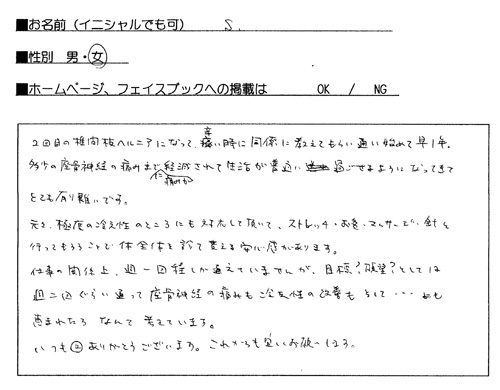 ■お名前（イニシャルでも可） S.
■性別 男・女
■ホームページ、フェイスブックへの掲載は OK / NG
2回目の椎間板ヘルニアになって、痛い時に関係に教えてもらい通い始めて早1年。
多少の座骨神経の痛みまで軽減されて生活が普通に過ごせるようになってきて
痛みが
とても有り難いです。
元々、極度の冷え性のところにも対応して頂いて、ストレッチ・お灸・マッサージ・針を
行ってもらうことで体全体を診て貰える安心感があります。
仕事の関係上、週一回程しか通えていませんが、目標？願望？としては
週二回ぐらい通って座骨神経の痛みも冷え性の改善も そして・・・とも
恵まれたら なんて 考えています。
いつも ありがとうございます。これからも宜しくお願いします。